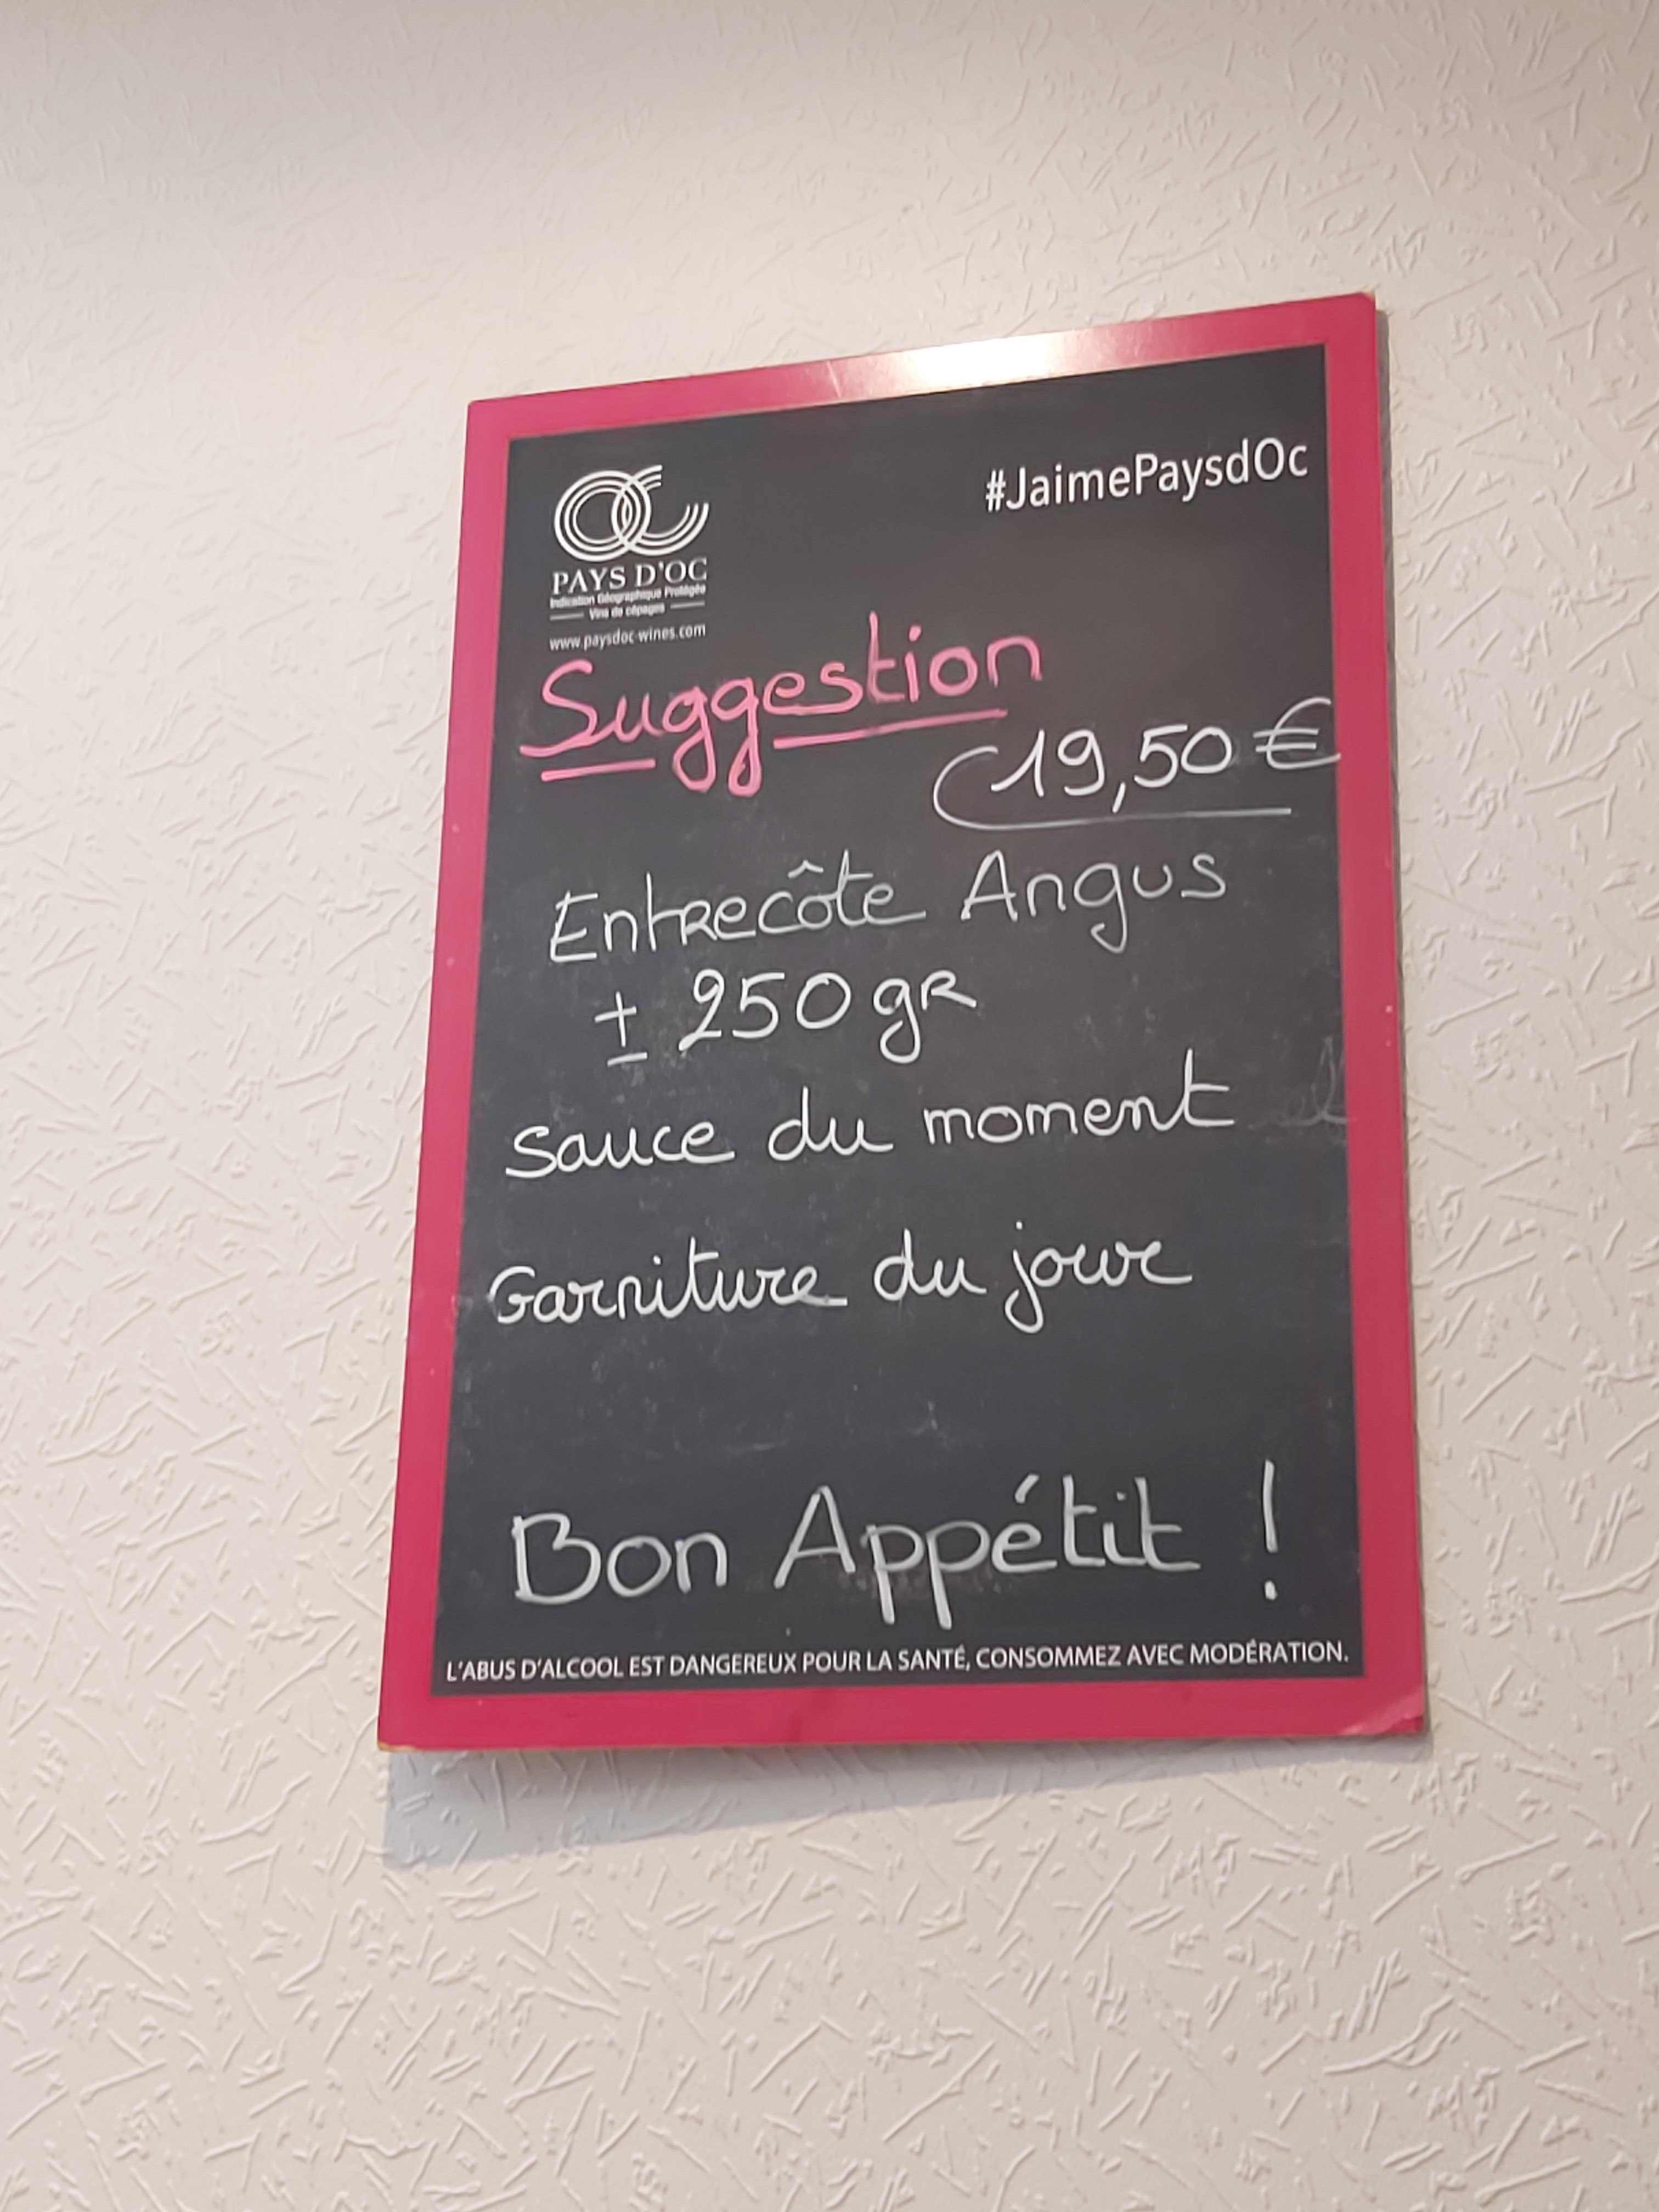 #JaimePaysdOc
PAYS D'OC
Indication Géographique Protégée
Vins de cépages
www.paysdoc-wines.com
Suggestion
19,50 €
Entrecôte Angus
± 250 gR
sauce du moment
Garniture du jour
Bon Appétit !
L'ABUS D'ALCOOL EST DANGEREUX POUR LA SANTÉ, CONSOMMEZ AVEC MODÉRATION.